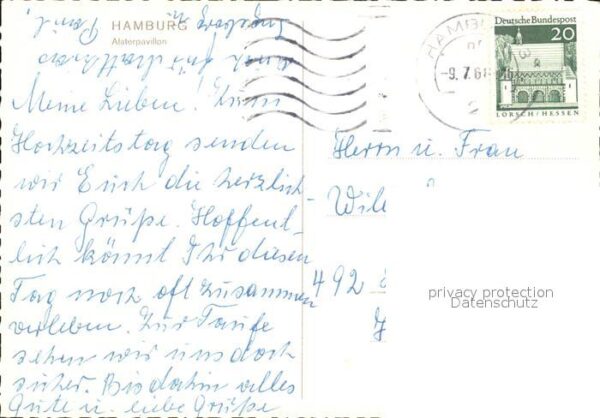 HAMBURG
Alsterpavillon
Meine Lieben! Zum
Hochzeitstag senden
wir Euch die herzlich-
sten Grüße. Hoffent-
lich könnt Ihr diesen
Tag noch oft zusammen
verleben. Zur Taufe
sehen wir uns doch
sicher. Bis dahin alles
Gute u. liebe Grüße
auch
HAMBURG
-9.7.6
Deutsche Bundespost
20
LORSCH/HESSEN
Herrn u. Frau
492
privacy protection
Datenschutz